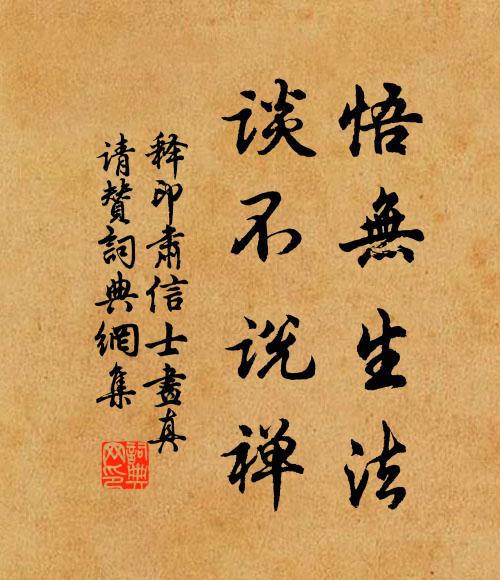 悟無生法
谈不说禅
释印肃信士畫真
请赞詞典網集
詞典网印